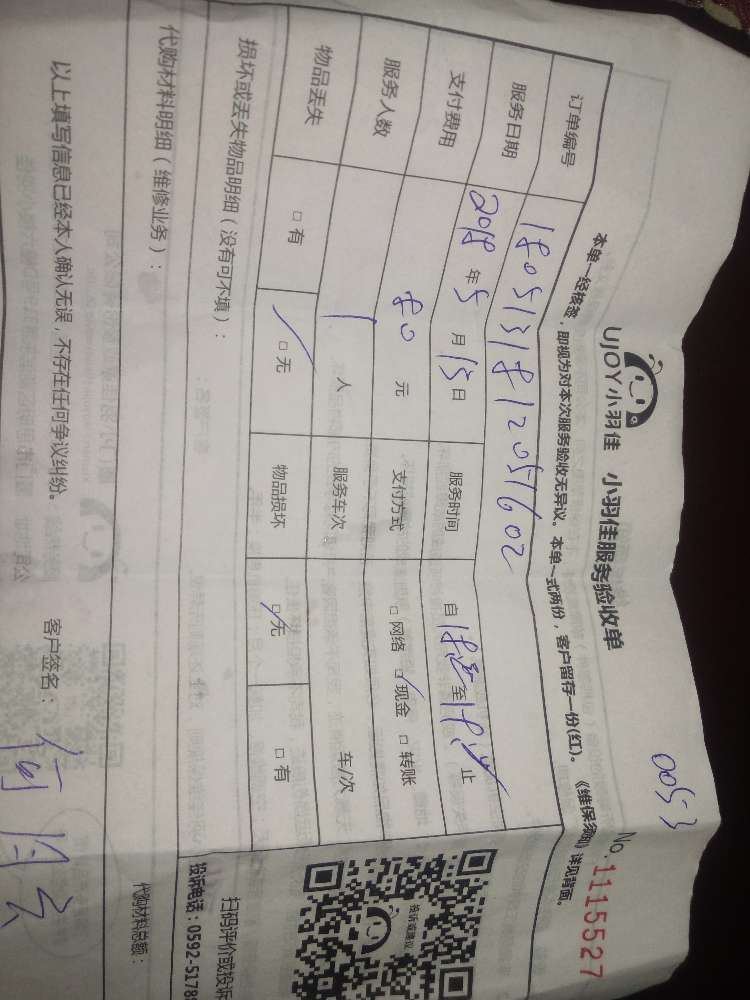 0053
UJOY小羽佳 小羽佳服务验收单
No. 1115527
本单一经核签，即视为对本次服务验收无异议。本单一式两份，客户留存一份(红)。《维保须知》详见背面。
订单编号 1805131812051602
服务日期 2018 年 5 月 15 日 服务时间 自 至 止
支付费用 80 元 支付方式 □ 网络 □ 现金 □ 转账
服务人数 1 人 服务车次 车/次
物品丢失 □ 有 □ 无 物品损坏 □ 无 □ 有
损坏或丢失物品明细（没有可不填）：
投诉或建议
扫码评价或投诉
投诉电话：0592-5178
代购材料明细（维修业务）：
代购材料总额：
以上填写信息已经本人确认无误，不存在任何争议纠纷。 客户签名：